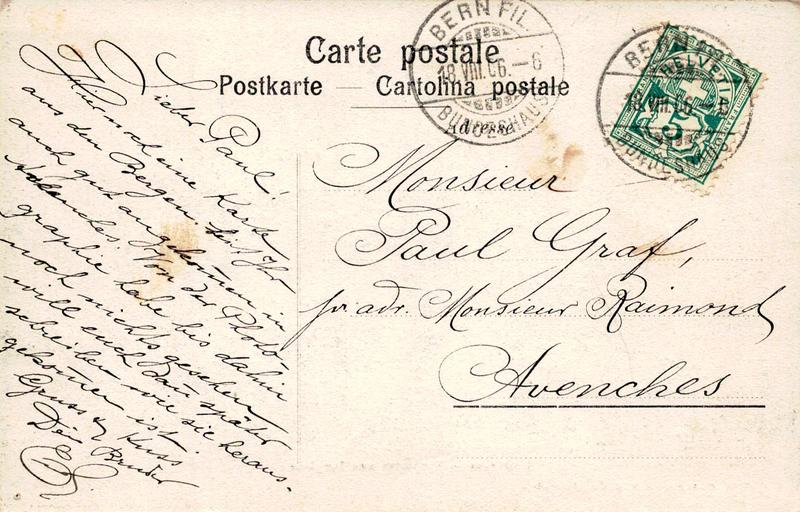 Carte postale
Postkarte — Cartolina postale
Adresse
BERN FIL.
18.VIII.06.—6
BUNDESHAUS
HELVETIA
5
18.VIII.06.—6
Monsieur
Paul Graf,
pr adr. Monsieur Raimond
Avenches
Lieber Paul!
Hier noch eine Karte
aus den Bergen.
auch gut angekommen in
Avenches. Von der Photo-
graphie habe bis dahin
noch nichts gesehen
will euch dann später
schreiben wie sie heraus-
gekommen ist.
Gruss u Kuss
Dein Bruder